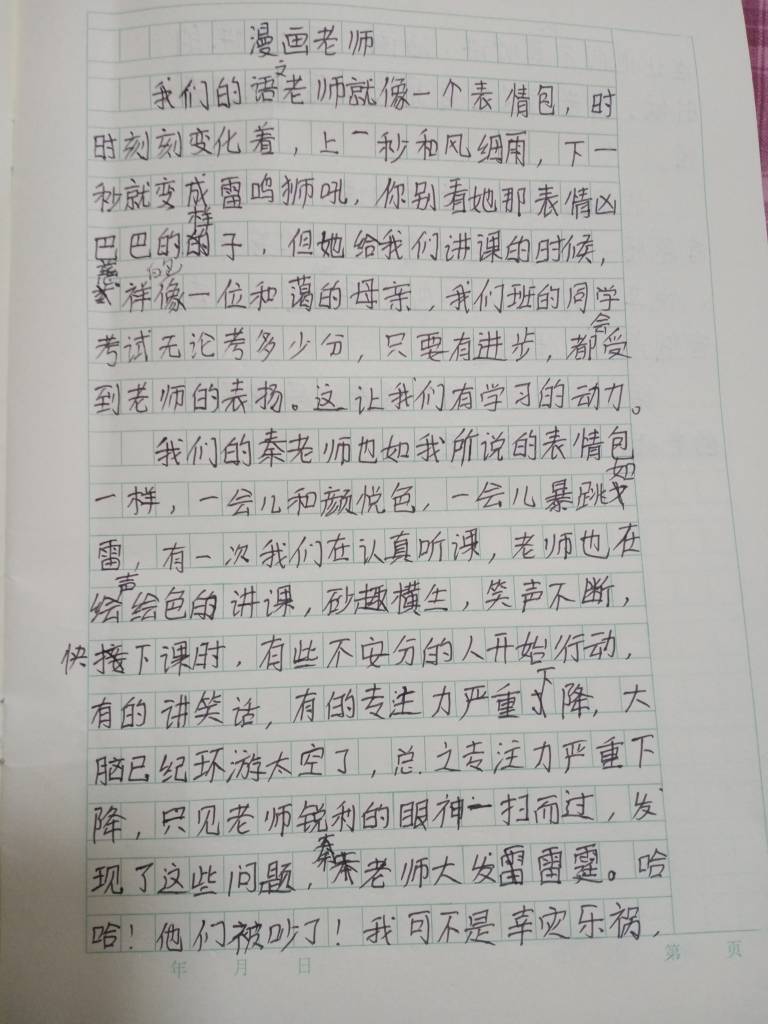 漫画老师
我们的语文老师就像一个表情包，时
时刻刻变化着，上一秒和风细雨，下一
秒就变成雷鸣狮吼，你别看她那表情凶
巴巴的样子，但她给我们讲课的时候，
慈祥像一位和蔼的母亲，我们班的同学
考试无论考多少分，只要有进步，都会受
到老师的表扬。这让我们有学习的动力。
我们的秦老师也如我所说的表情包
一样，一会儿和颜悦色，一会儿暴跳如
雷，有一次我们在认真听课，老师也在
绘声绘色的讲课，砂趣横生，笑声不断，
快接下课时，有些不安分的人开始行动，
有的讲笑话，有的专注力严重下降，大
脑已纪环游太空了，总之专注力严重下
降，只见老师锐利的眼神一扫而过，发
现了这些问题，秦老师大发雷雷霆。哈
哈！他们被吵了！我可不是幸灾乐祸，
年 月 日
第 页